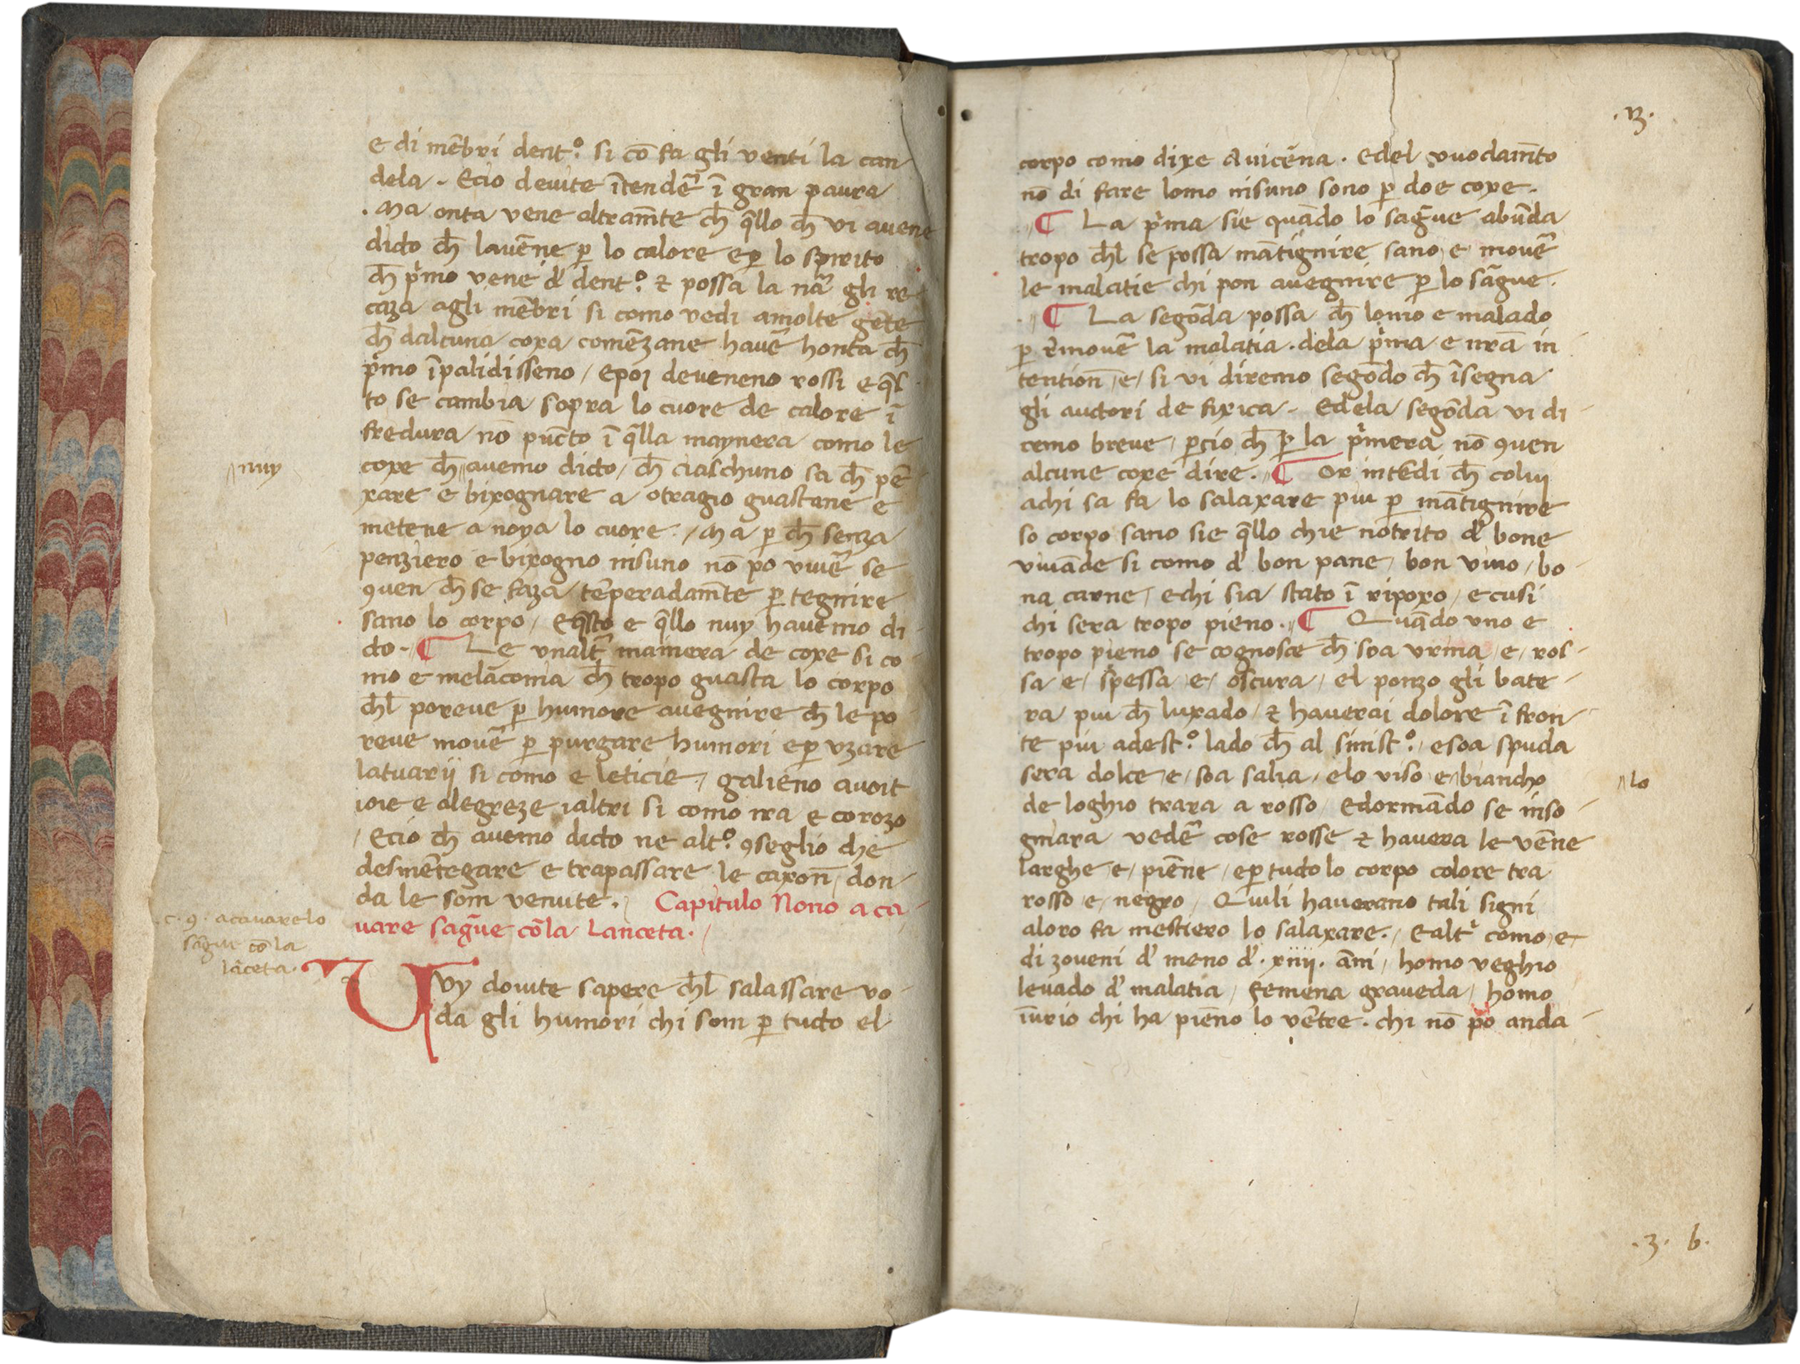 e di mēbri dent.º si cō fa gli venti la can
dela. Ecio devite ītendēr ī gran paura
. Ma onta vene altram̄te ch̄ q̄llo ch̄ vi avene
dicto ch̄ lavēne p̄ lo calore ep̄ lo spirito
ch̄ p̄mo vene d̄ dent.º & possa la nā gli re
caza agli mēbri si como vedi amolte gēte
ch̄ dalcuna coxa comēzane havēr honta ch̄
p̄mo īpalidisseno / epoi deveneno rossi e q̄s
to se cambia sopra lo cuore de calore ī
fredura nō pūcto ī q̄lla maynera como le
nuy
coxe ch̄ avemo dicto / ch̄ ciaschuno sa ch̄ pē
xare e bixognare a otragio guastane e
metene a noya lo cuore. / Ma p̄ ch̄ senza
penziero e bixogno nisuno nō po vivēr se
9uen ch̄ se faza tēperadam̄te p̄ tegnire
sano lo corpo / Eq̄sto e q̄llo nuy havemo di
do. ¶ Le unaltr̄ mainera de coxe si co
mo e melācomia ch̄ tropo guasta lo corpo
ch̄l poreve p̄ humore avegnire ch̄ le po
reve movēr p̄ purgare humori ep̄ vzare
latuarij si como e leticie / galieno avoit
ioie e alegreze ialtri si como ira e corozo
/ Ecio ch̄ avemo dicto ne alt.º 9seglio che
desmētegare e trapassare le caxon̄ / don
da le som venute. / Capitulo Nono a ca
vare sagūe cōla Lanceta.
.c. 9. acavare lo
sāgue cō la
lāceta.
Vvy dovite sapere ch̄l salassare vo
da gli humori chi som p̄ tucto el
.13.
corpo como dixe Avicēna. Edel vuodam̄to
nō di fare lomo nisuno sono p̄ doe coxe.
¶ La p̄ma sie quādo lo sāgue abūda
tropo ch̄l se possa mātignire sano e movēr
le malatie chi pon avegnire p̄ lo sāgue.
¶ La segōda possa ch̄ lomo e malado
p̄ rimovēr la malatia. dela p̄ma e nr̄a in
tention̄ e / si vi diremo segōdo ch̄ īsegna
gli auctori de fixica. Edela segōda vi di
remo breve / p̄cio ch̄ p̄ la p̄mera nō 9uen
alcune coxe dire. ¶ Or intēdi ch̄ colui
achi sa fa lo salaxare piu p̄ mātignire
so corpo sano sie q̄llo chie nōtrito d̄ bone
vivāde si como d̄ bon pane / bon vino / bo
na carne / echi sia stato ī riposo / e cusi
chi sera tropo pieno. ¶ Quādo uno e
tropo pieno se cognosce ch̄ soa urina / e / ros
sa e / spessa e / oscura / el ponzo gli bate
ra piu ch̄ luxado / & haverai dolore ī fron
te piu adest.º lado ch̄ al sinist.º / e soa spuda
sera dolce e / soa salia / elo viso e biancho
lo
de loghio trara a rosso Edormādo se inso
gniara vedēr cose rosse & havera le vēne
larghe e / piēne / ep̄ tudo lo corpo colore tra
rosso e / negro / Quili haverano tali signi
aloro fa mestiero lo salaxare. / Ealtr̄ como e
di zoveni d̄ meno d̄ .xiiij. āni / homo veghio
levado d̄ malatia / femena graveda / homo
īvrio chi ha pieno lo vētre. chi nō po anda
.3. b.